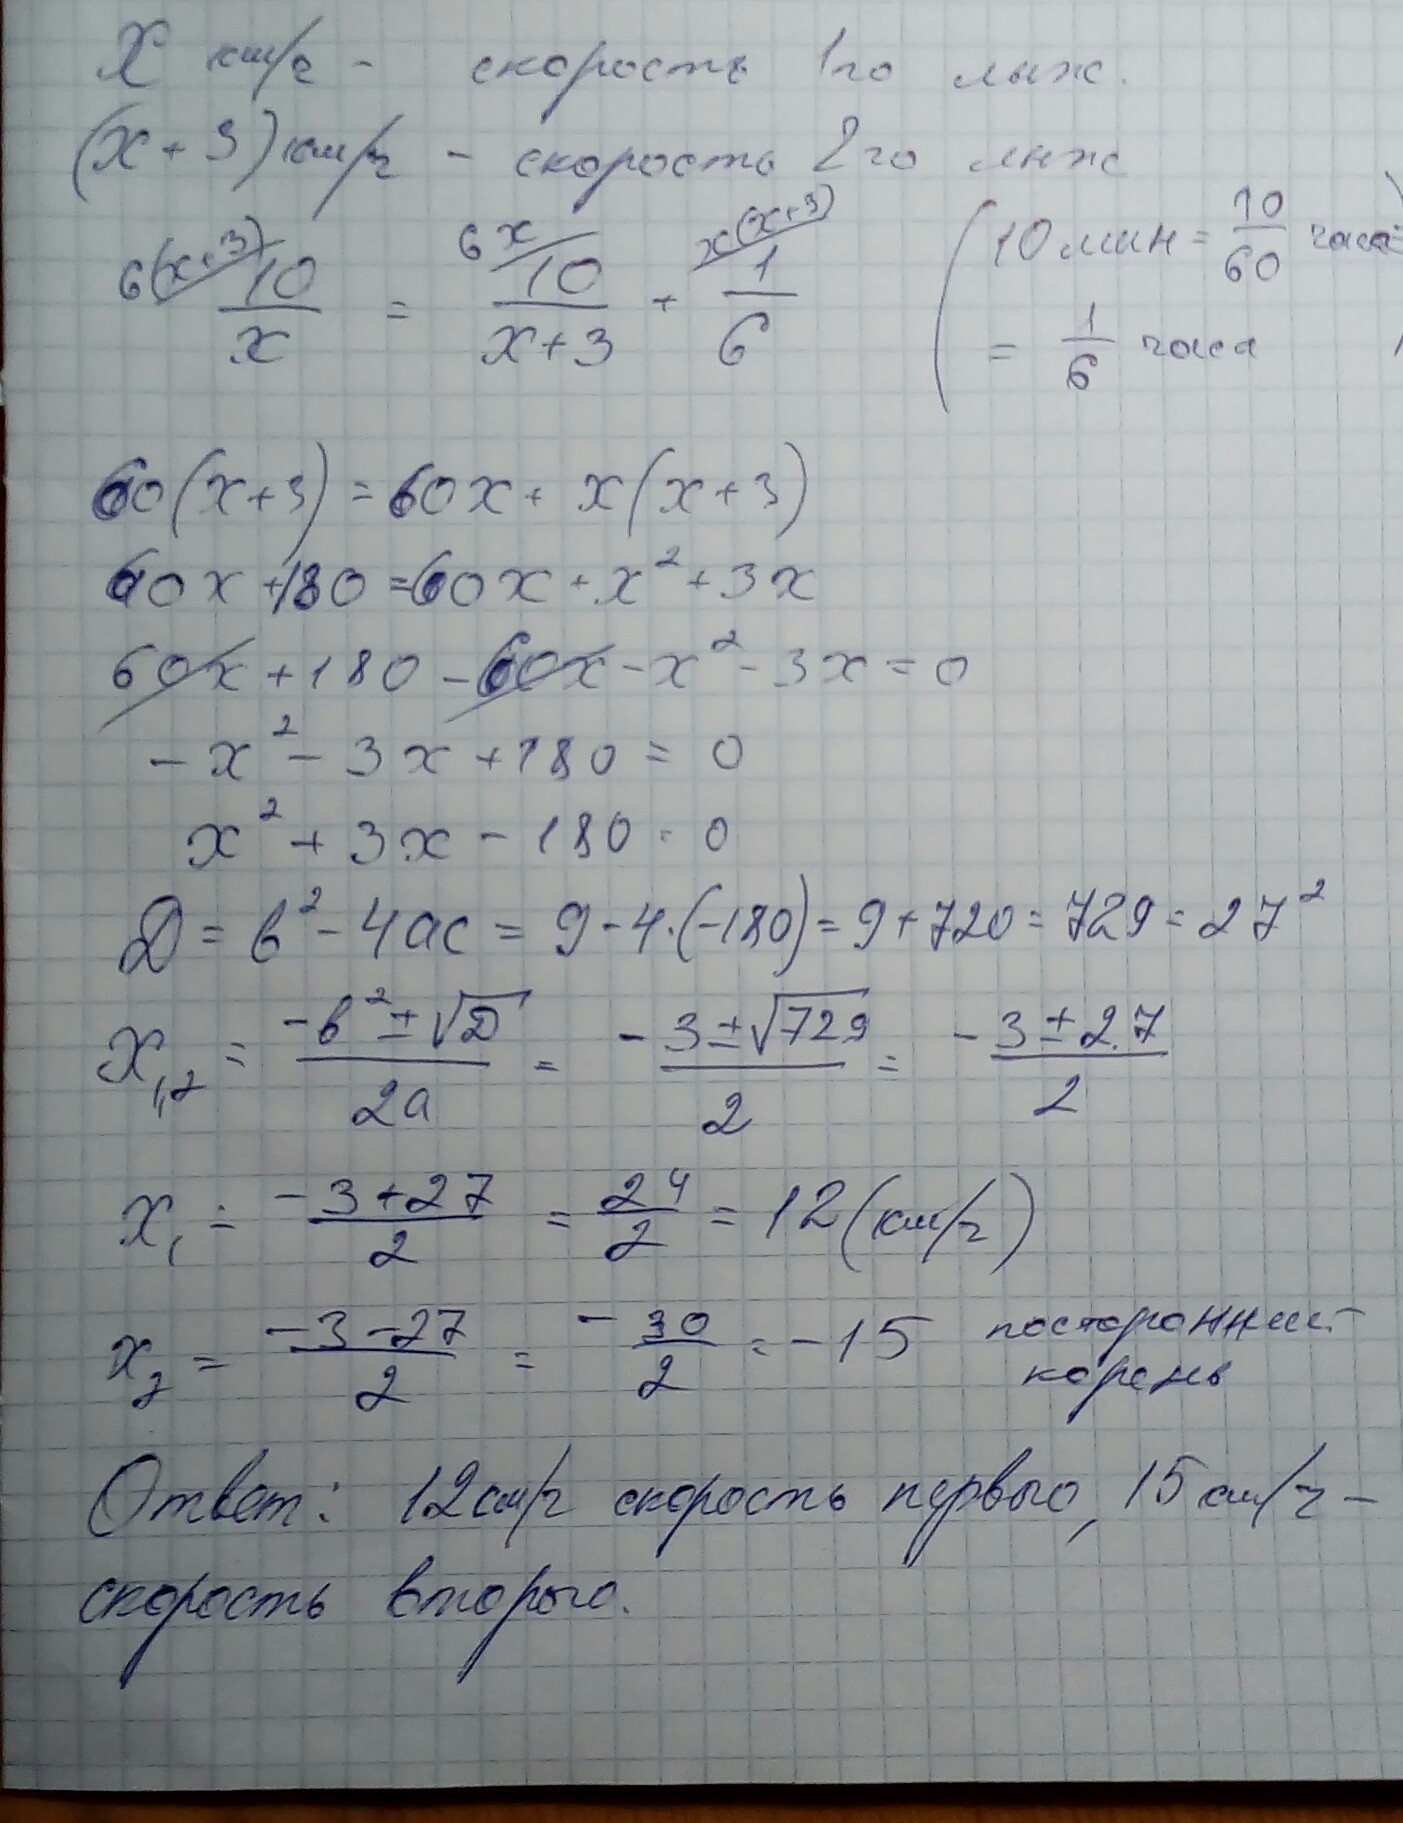 X км/ч - скорость 1го лыж.
(x + 3) км/ч - скорость 2го лыж
6(x+3) 10/x = 6x 10/(x+3) + x(x+3) 1/6 (10 мин = 10/60 часа =
= 1/6 часа )
60(x+3) = 60x + x(x+3)
60x + 180 = 60x + x² + 3x
60x + 180 - 60x - x² - 3x = 0
- x² - 3x + 180 = 0
x² + 3x - 180 = 0
D = b² - 4ac = 9 - 4·(-180) = 9 + 720 = 729 = 27²
x₁,₂ = (-b² ± √D)/2a = - (3 ± √729)/2 = - (3 ± 27)/2
x₁ = (-3 + 27)/2 = 24/2 = 12 (км/ч)
x₂ = (-3 - 27)/2 = - 30/2 = -15 посторонний
корень
Ответ: 12 км/ч скорость первого, 15 км/ч -
скорость второго.